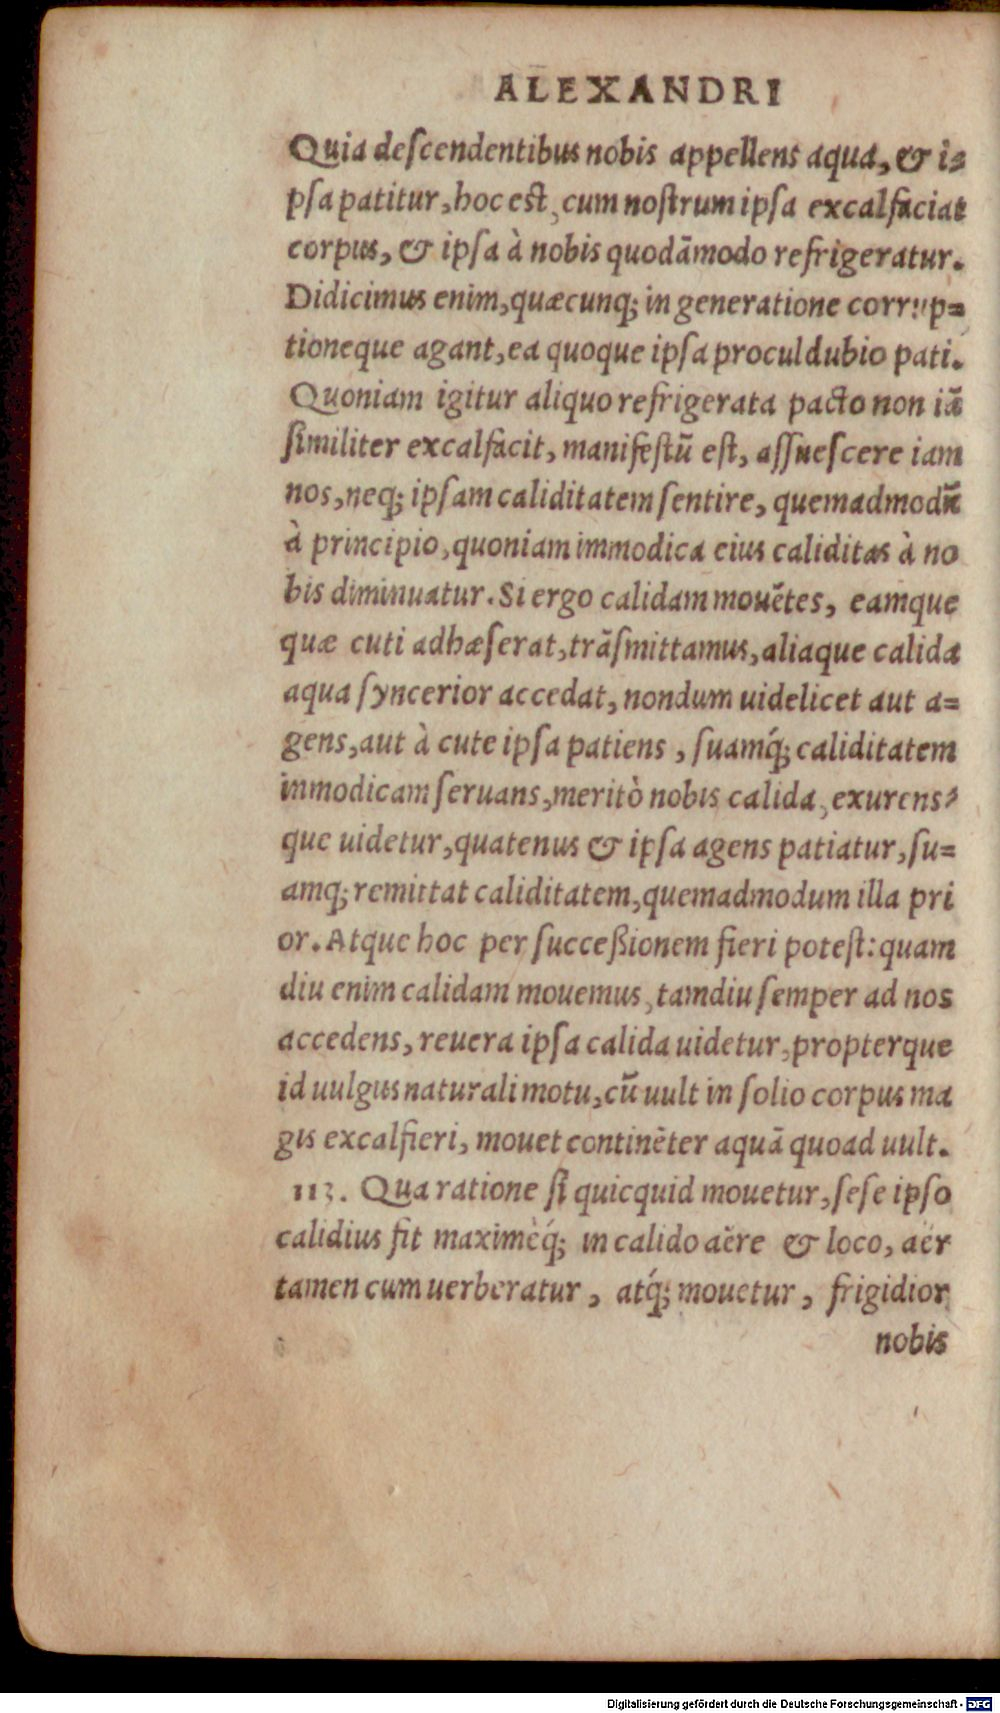 ALEXANDRI
Quia deſcendentibus nobis appellens aqua, & i=
pſa patitur, hoc est, cum noſtrum ipſa excalfaciat
corpus, & ipſa à nobis quodāmodo refrigeratur.
Didicimus enim, quæcunq; in generatione corrup=
tioneque agant, ea quoque ipſa proculdubio pati.
Quoniam igitur aliquo refrigerata pacto non iā
ſimiliter excalfacit, manifeſtū eſt, aſſueſcere iam
nos, neq; ipſam caliditatem ſentire, quemadmodū
à principio, quoniam immodica eius caliditas à no
bis diminuatur. Si ergo calidam mouētes, eamque
quæ cuti adhæſerat, trāſmittamus, aliaque calida
aqua ſyncerior accedat, nondum uidelicet aut a=
gens, aut à cute ipſa patiens, ſuamq́; caliditatem
immodicam ſeruans, meritò nobis calida, exurens=
que uidetur, quatenus & ipſa agens patiatur, ſu=
amq; remittat caliditatem, quemadmodum illa pri
or. Atque hoc per ſucceßionem fieri poteſt: quam
diu enim calidam mouemus, tamdiu ſemper ad nos
accedens, reuera ipſa calida uidetur, propterque
id uulgus naturali motu, cū uult in ſolio corpus ma
gis excalfieri, mouet continēter aquā quoad uult.
113. Qua ratione ſi quicquid mouetur, ſeſe ipſo
calidius fit maximèq́; in calido aëre & loco, aër
tamen cum uerberatur, atq́; mouetur, frigidior
nobis
Digitalisierung gefördert durch die Deutsche Forschungsgemeinschaft - DFG